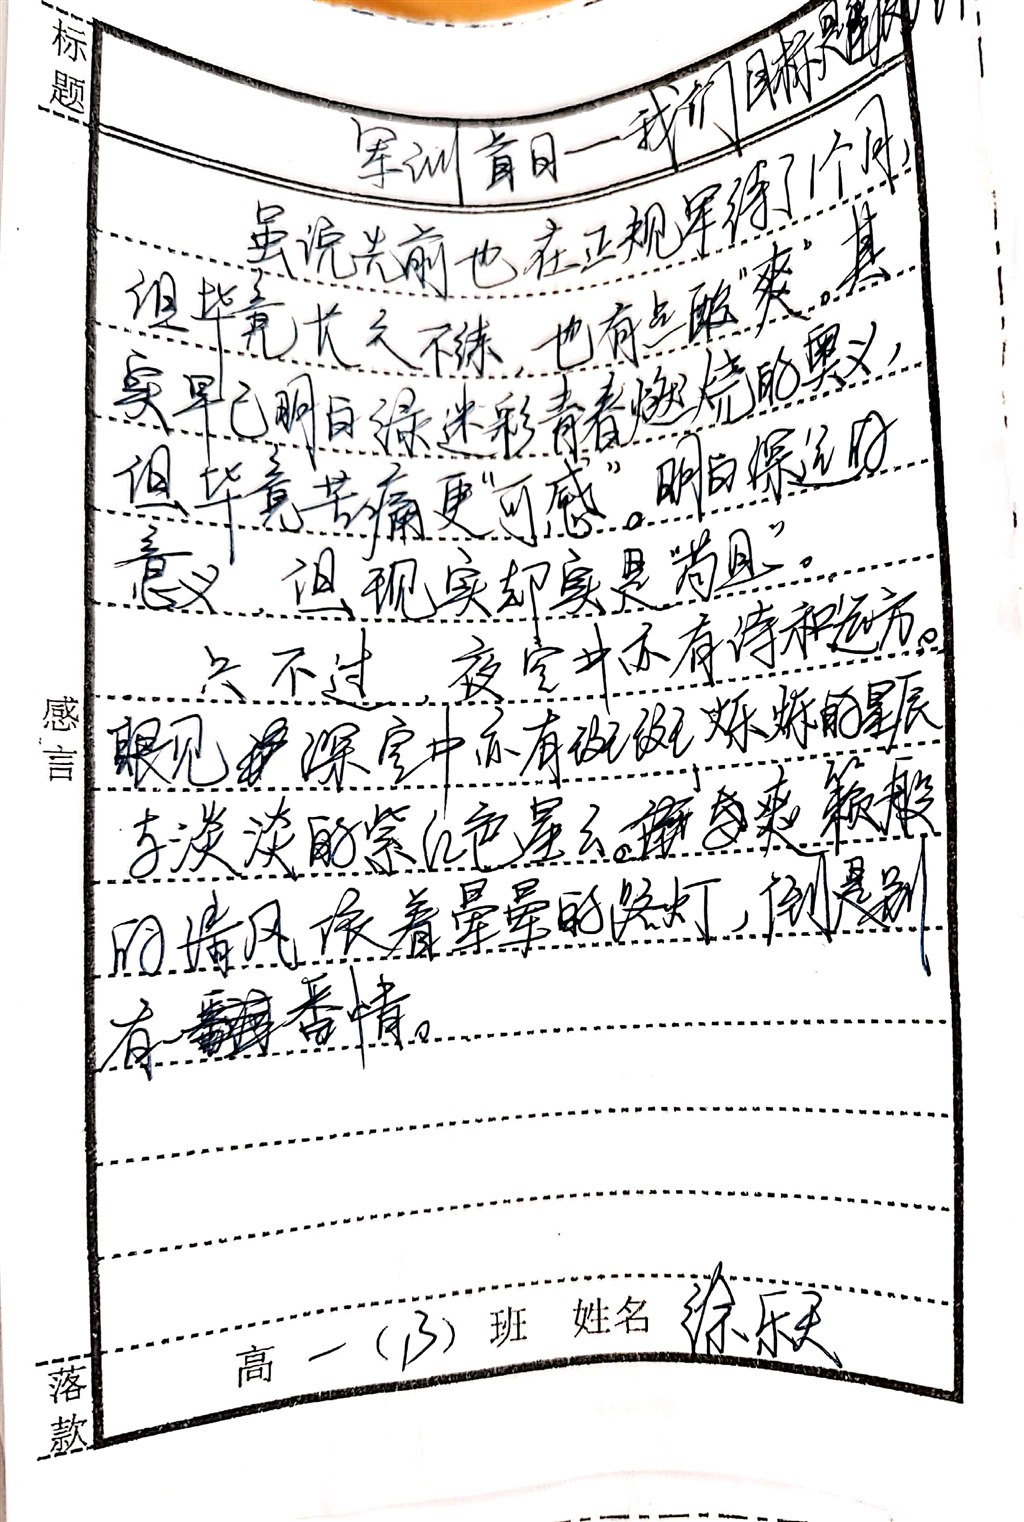 标题
军训首日——我们目标是
虽说先前也在正规军待了1个月，
但毕竟长久不练，也有点酸“爽”。其
实早已明白绿迷彩青春燃烧的奥义，
但毕竟苦痛更“可感”。明白深远的
意义，但现实却实是“苟且”。
只不过，夜空中亦有诗和远方。
眼见深空中亦有斑斑烁烁的星辰
与淡淡的紫红色星云。爽籁般
的清风依着晕晕的路灯，倒是别
有番情。
感言
高一（13）班 姓名 徐乐天
落款